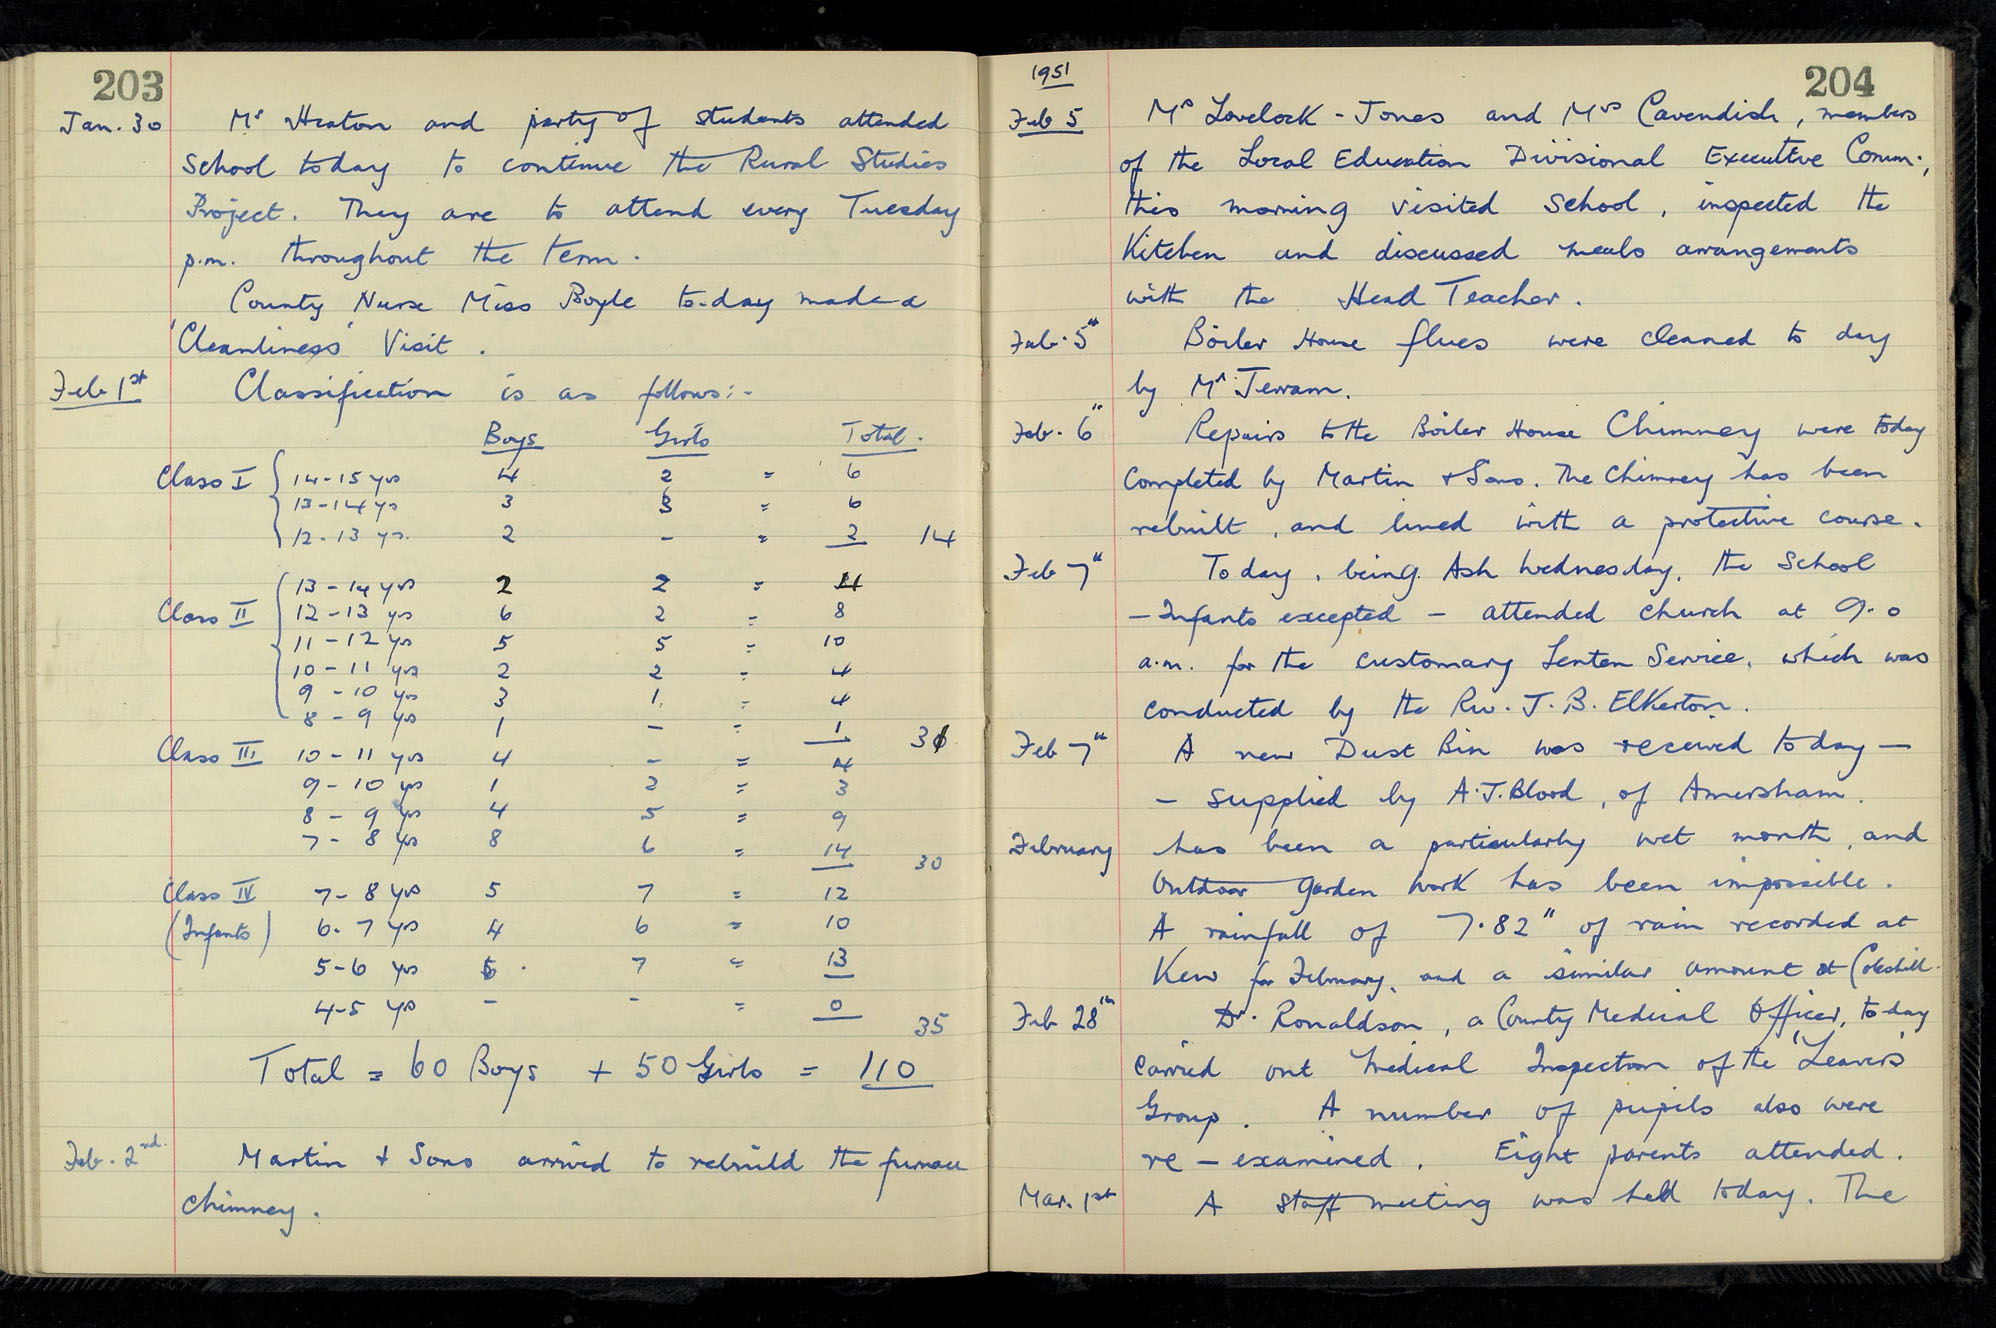 203
Jan. 30 Mr Heaton and party of students attended
School today to continue the Rural Studies
Project. They are to attend every Tuesday
p.m. throughout the term.
County Nurse Miss Boyle to-day made a
'Cleanliness' Visit.
Feb 1st Classification is as follows:-
Boys Girls Total.
Class I 14-15 yrs 4 2 = 6
13-14 yrs 3 3 = 6
12-13 yrs. 2 - = 2 14
13-14 yrs 2 2 = 4
Class II 12-13 yrs 6 2 = 8
11-12 yrs 5 5 = 10
10-11 yrs 2 2 = 4
9-10 yrs 3 1 = 4
8-9 yrs 1 - = 1 31
Class III 10-11 yrs 4 - = 4
9-10 yrs 1 2 = 3
8-9 yrs 4 5 = 9
7-8 yrs 8 6 = 14 30
Class IV 7-8 yrs 5 7 = 12
(Infants) 6-7 yrs 4 6 = 10
5-6 yrs 6 7 = 13
4-5 yrs - - = 0 35
Total = 60 Boys + 50 Girls = 110
Feb. 2nd. Martin & Sons arrived to rebuild the furnace
chimney.
1951
204
Feb 5 Mr Lovelock-Jones and Mrs Cavendish, members
of the Local Education Divisional Executive Comm.,
this morning visited School, inspected the
Kitchen and discussed meals arrangements
with the Head Teacher.
Feb. 5th Boiler House flues were cleaned to day
by Mr Jerram.
Feb. 6th Repairs to the Boiler House Chimney were today
completed by Martin & Sons. The Chimney has been
rebuilt, and lined with a protective course.
Feb 7th Today, being Ash Wednesday, the School
- Infants excepted - attended church at 9.0
a.m. for the customary Lenten Service, which was
conducted by the Rev. J. B. Elkerton.
Feb 7th A new Dust Bin was received today -
- supplied by A.J. Blood, of Amersham.
February has been a particularly wet month, and
Outdoor garden work has been impossible.
A rainfall of 7.82" of rain recorded at
Kew for February, and a similar amount at Coleshill.
Feb 28th Dr. Ronaldson, a County Medical Officer, today
carried out Medical Inspection of the 'Leavers'
Group. A number of pupils also were
re-examined. Eight parents attended.
Mar. 1st A staff meeting was held today. The